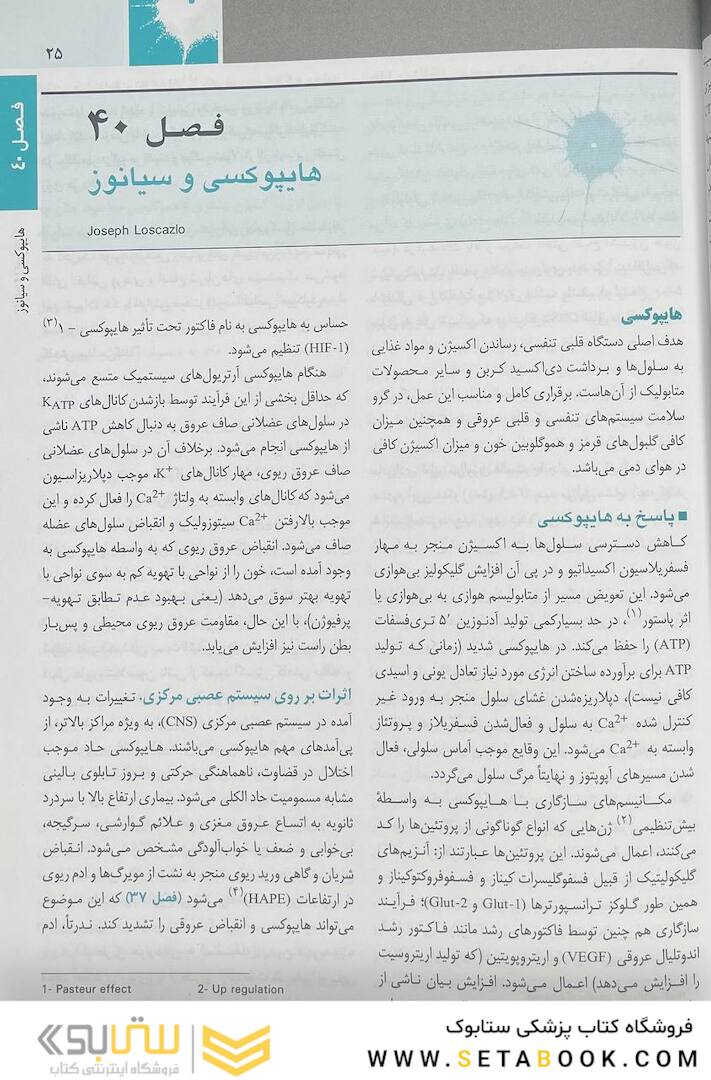 ۲۵
فصل ۴۰
هایپوکسی و سیانوز
فصل ۴۰
هایپوکسی و سیانوز
Joseph Loscazlo
هایپوکسی
هدف اصلی دستگاه قلبی تنفسی، رساندن اکسیژن و مواد غذایی
به سلول‌ها و برداشت دی‌اکسید کربن و سایر محصولات
متابولیک از آن‌هاست. برقراری کامل و مناسب این عمل، در گرو
سلامت سیستم‌های تنفسی و قلبی عروقی و همچنین میزان
کافی گلبول‌های قرمز و هموگلوبین خون و میزان اکسیژن کافی
در هوای دمی می‌باشد.
■ پاسخ به هایپوکسی
کاهش دسترسی سلول‌ها به اکسیژن منجر به مهار
فسفریلاسیون اکسیداتیو و در پی آن افزایش گلیکولیز بی‌هوازی
می‌شود. این تعویض مسیر از متابولیسم هوازی به بی‌هوازی یا
اثر پاستور(۱)، در حد بسیارکمی تولید آدنوزین ′۵ تری‌فسفات
(ATP) را حفظ می‌کند. در هایپوکسی شدید (زمانی که تولید
ATP برای برآورده ساختن انرژی مورد نیاز تعادل یونی و اسیدی
کافی نیست)، دپلاریزه‌شدن غشای سلول منجر به ورود غیر
کنترل شده Ca2+ به سلول و فعال‌شدن فسفریلاز و پروتئاز
وابسته به Ca2+ می‌شود. این وقایع موجب آماس سلولی، فعال
شدن مسیرهای آپوپتوز و نهایتاً مرگ سلول می‌گردد.
مکانیسم‌های سازگاری با هایپوکسی به واسطهٔ
بیش‌تنظیمی(۲) ژن‌هایی که انواع گوناگونی از پروتئین‌ها را کد
می‌کنند، اعمال می‌شوند. این پروتئین‌ها عبارتند از: آنزیم‌های
گلیکولیتیک از قبیل فسفوگلیسرات کیناز و فسفوفروکتوکیناز و
همین طور گلوکز ترانسپورترها (Glut-1 و Glut-2)؛ فرآیند
سازگاری هم چنین توسط فاکتورهای رشد مانند فاکتور رشد
اندوتلیال عروقی (VEGF) و اریتروپویتین (که تولید اریتروسیت
را افزایش می‌دهد) اعمال می‌شود. افزایش بیان ناشی از
حساس به هایپوکسی به نام فاکتور تحت تأثیر هایپوکسی – ۱(۳)
(HIF-1) تنظیم می‌شود.
هنگام هایپوکسی آرتریول‌های سیستمیک متسع می‌شوند،
که حداقل بخشی از این فرآیند توسط بازشدن کانال‌های KATP
در سلول‌های عضلانی صاف عروق به دنبال کاهش ATP ناشی
از هایپوکسی انجام می‌شود. برخلاف آن در سلول‌های عضلانی
صاف عروق ریوی، مهار کانال‌های K+، موجب دپلاریزاسیون
می‌شود که کانال‌های وابسته به ولتاژ Ca2+ را فعال کرده و این
موجب بالارفتن Ca2+ سیتوزولیک و انقباض سلول‌های عضله
صاف می‌شود. انقباض عروق ریوی که به واسطه هایپوکسی به
وجود آمده است، خون را از نواحی با تهویه کم به سوی نواحی با
تهویه بهتر سوق می‌دهد (یعنی بهبود عدم تطابق تهویه-
پرفیوژن)، با این حال، مقاومت عروق ریوی محیطی و پس‌بار
بطن راست نیز افزایش می‌یابد.
اثرات بر روی سیستم عصبی مرکزی. تغییرات به وجود
آمده در سیستم عصبی مرکزی (CNS)، به ویژه مراکز بالاتر، از
پی‌آمدهای مهم هایپوکسی می‌باشند. هایپوکسی حاد موجب
اختلال در قضاوت، ناهماهنگی حرکتی و بروز تابلوی بالینی
مشابه مسمومیت حاد الکلی می‌شود. بیماری ارتفاع بالا با سردرد
ثانویه به اتساع عروق مغزی و علائم گوارشی، سرگیجه،
بی‌خوابی و ضعف یا خواب‌آلودگی مشخص می‌شود. انقباض
شریان و گاهی ورید ریوی منجر به نشت از مویرگ‌ها و ادم ریوی
در ارتفاعات (HAPE)(۴) می‌شود (فصل ۳۷) که این موضوع
می‌تواند هایپوکسی و انقباض عروقی را تشدید کند. ندرتاً، ادم
1- Pasteur effect
2- Up regulation
فروشگاه کتاب پزشکی ستابوک
WWW.SETABOOK.COM
ستابوک
فروشگاه اینترنتی کتاب